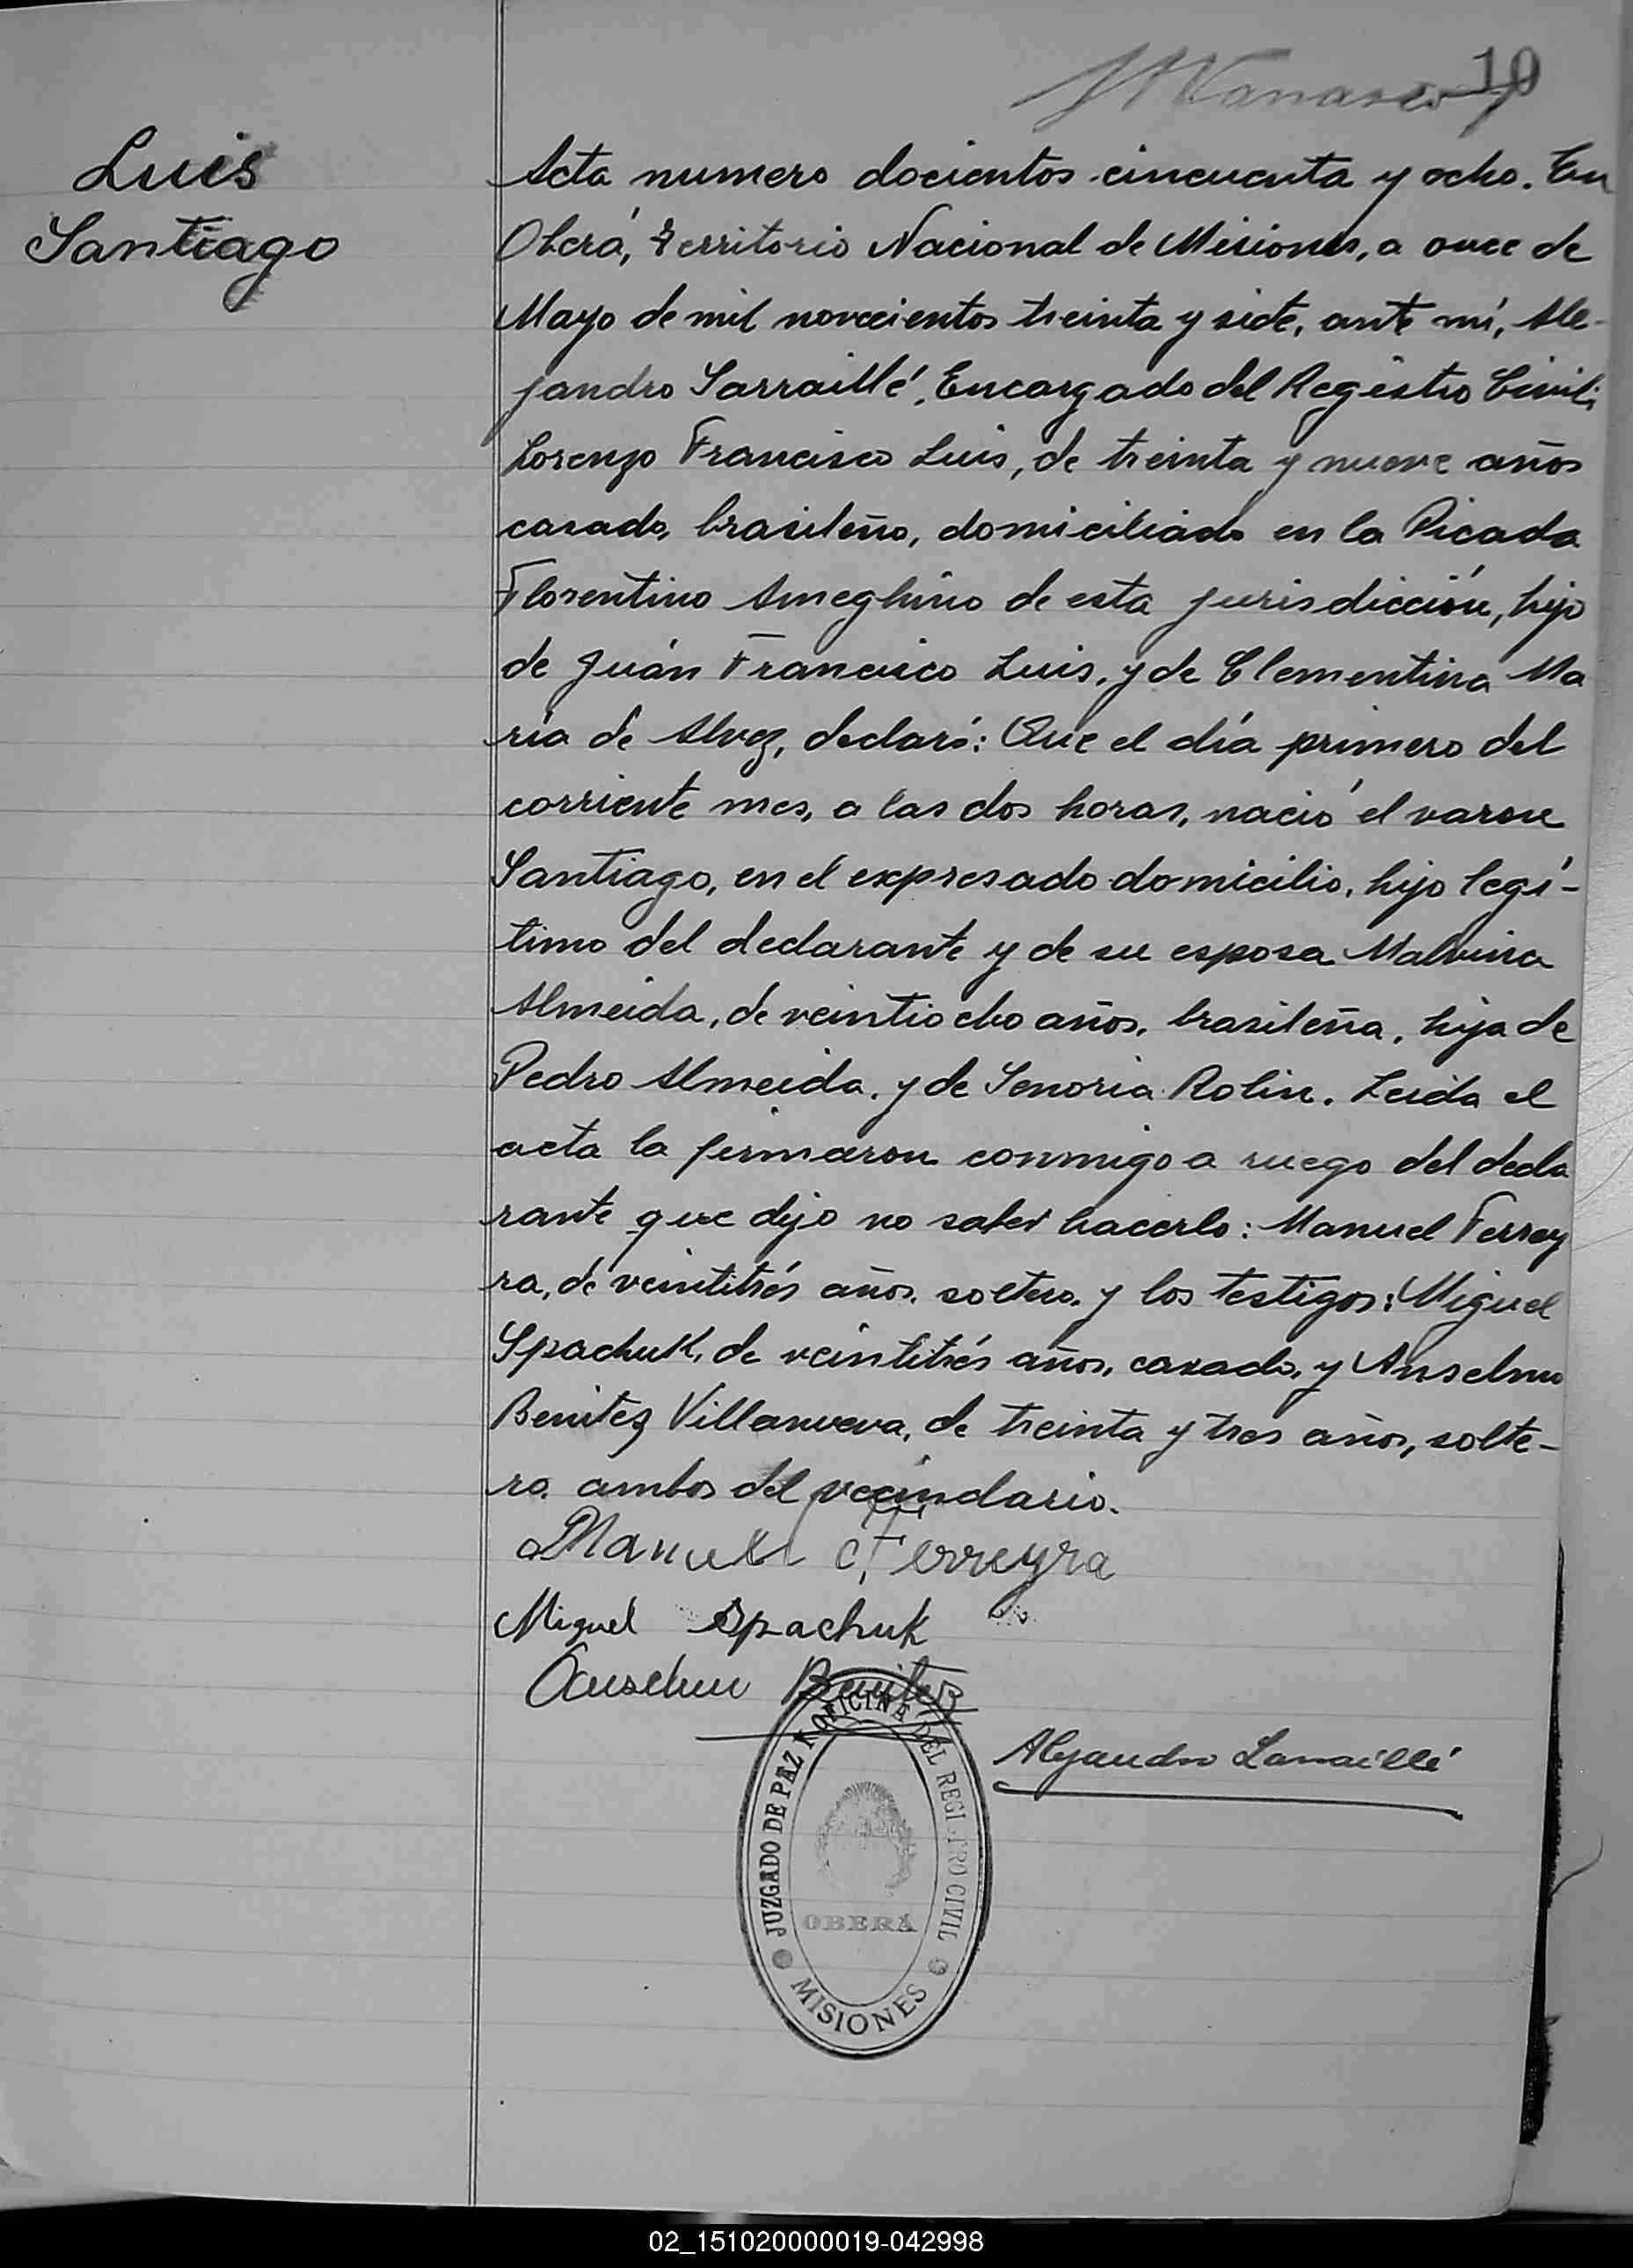 10
Luis
Santiago
Acta numero docientos cincuenta y ocho. En
Oberá, Territorio Nacional de Misiones, a once de
Mayo de mil novecientos treinta y siete, ante mí, Ale-
jandro Sarraillé, Encargado del Registro Civil,
Lorenzo Francisco Luis, de treinta y nueve años
casado, brasileño, domiciliado en la Picada
Florentino Ameghino de esta jurisdicción, hijo
de Juán Francisco Luis, y de Clementina Ma
ria de Alvez, declaró: Que el día primero del
corriente mes, a las dos horas, nació el varon
Santiago, en el expresado domicilio, hijo legí-
timo del declarante y de su esposa Malvina
Almeida, de veintiocho años, brasileña, hija de
Pedro Almeida, y de Senoria Rolin. Leida el
acta la firmaron conmigo a ruego del decla
rante que dijo no saber hacerlo: Manuel Ferrey
ra, de veintitrés años, soltero, y los testigos: Miguel
Spachuk, de veintitrés años, casado, y Anselmo
Benitez Villanueva, de treinta y tres años, solte-
ro, ambos del vecindario.
Manuel Ferreyra
Miguel Spachuk
Anselmo Benitez
Alejandro Sarraillé
JUZGADO DE PAZ Y OFICINA DEL REGISTRO CIVIL
OBERÁ
MISIONES
02_151020000019-042998